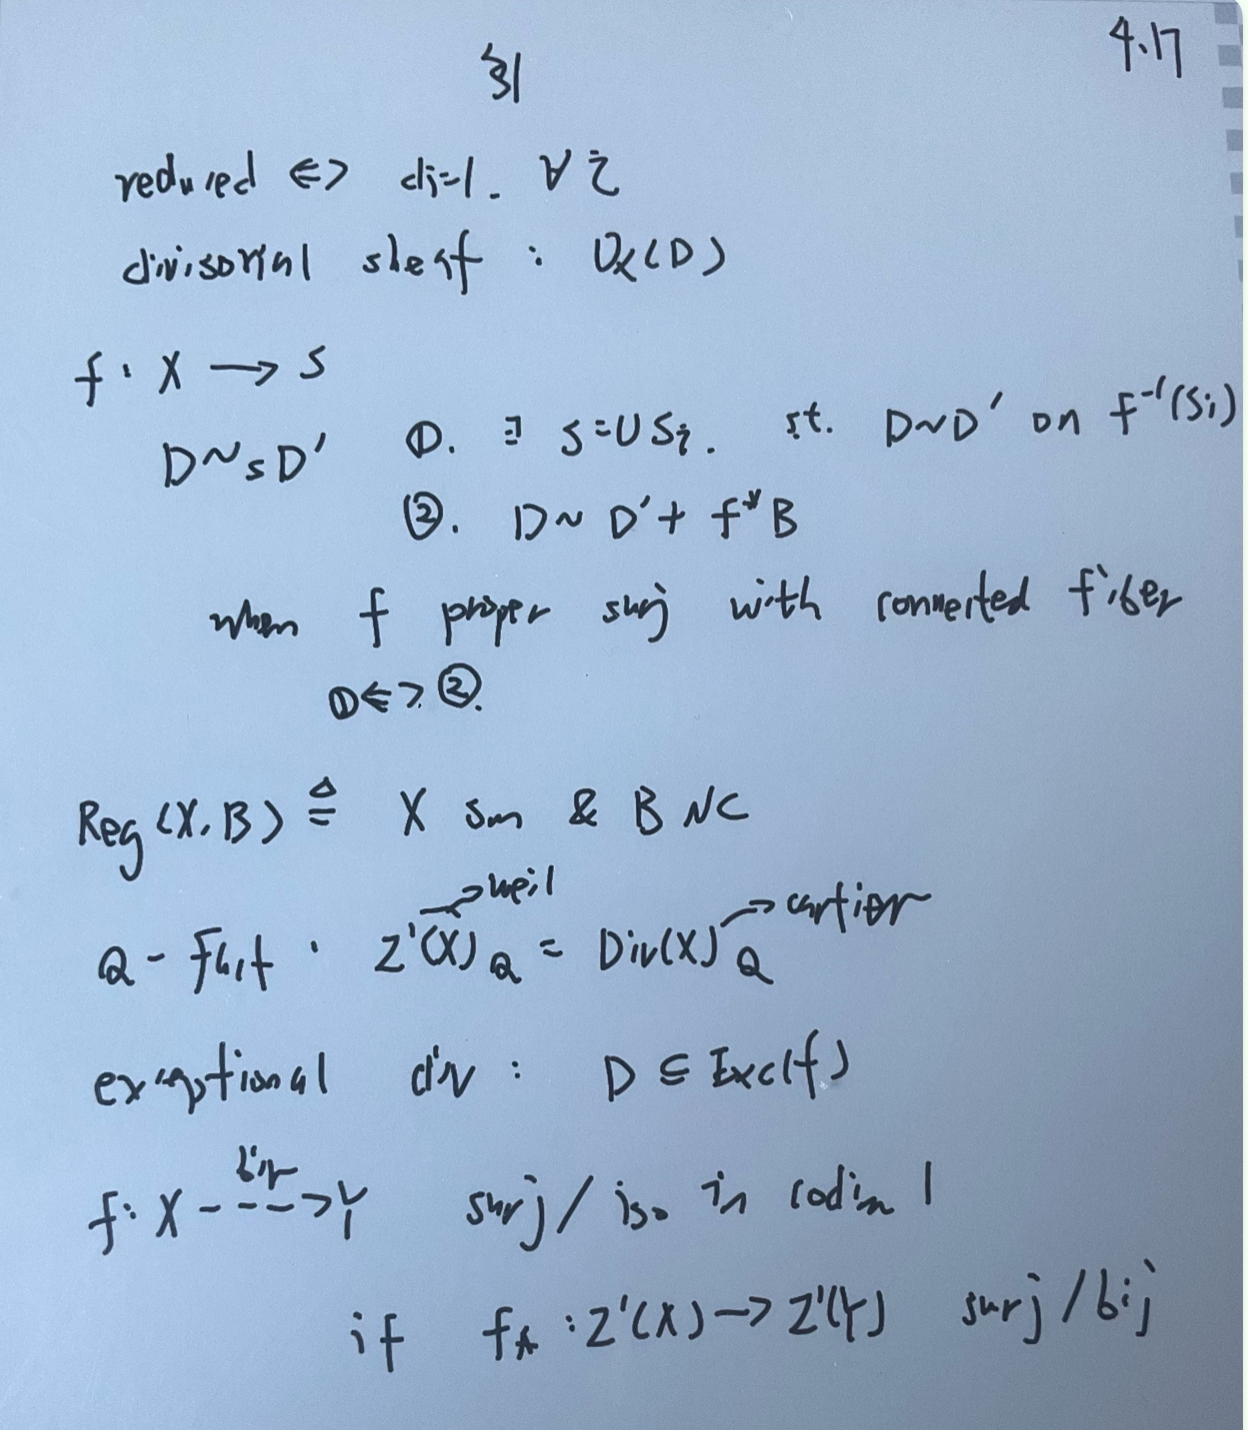 4.17
§1
reduced <=> di=1. ∀ i
divisorial sheaf : O_X(D)
f : X → S
D ~_S D' ①. ∃ S=∪Si. st. D~D' on f^-1(Si)
②. D ~ D' + f^*B
when f proper surj with connected fiber
① <=> ②.
Reg (X, B) ≜ X sm & B NC
→ weil → cartier
Q-fact : Z^1(X)_Q = Div(X)_Q
exceptional div : D ⊆ Exc(f)
bir
f: X ---> Y surj / iso in codim 1
if f_* : Z^1(X) → Z^1(Y) surj / bij